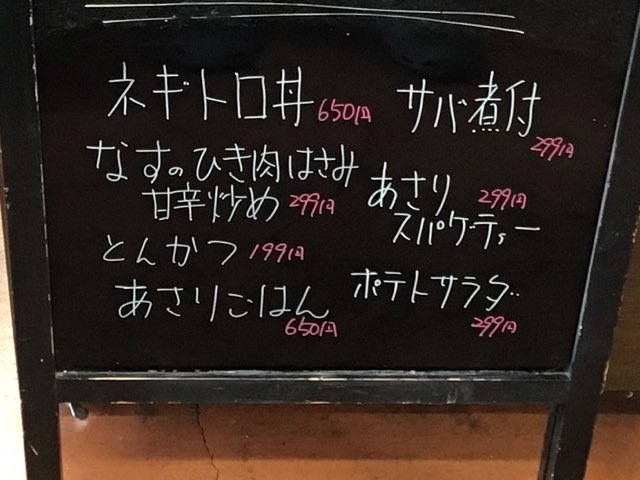 ネギトロ丼 650円
なすのひき肉はさみ
甘辛炒め 299円
とんかつ 199円
あさりごはん
650円
サバ煮付
299円
あさり 299円
スパゲティー
ポテトサラダ
299円